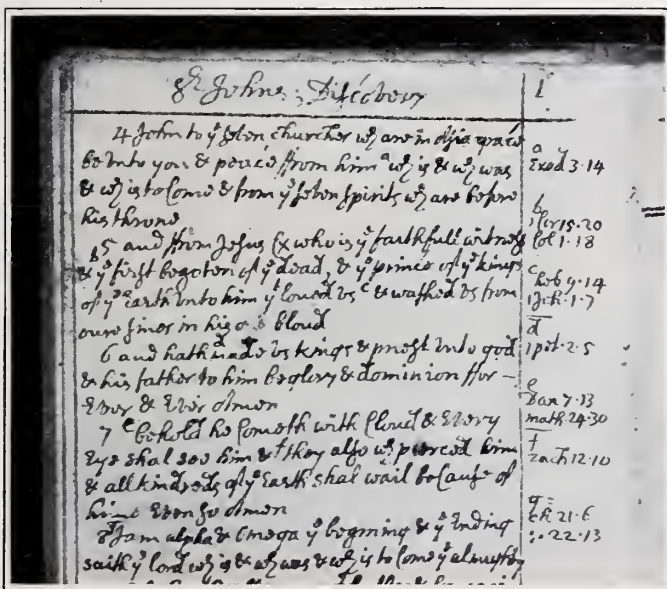 St Johns: Discovery
1
4 John to yᵉ seven churches wᶜʰ are in asia grace
be vnto you & peace ffrom him ᵃ wᶜʰ is & wᶜʰ was
& wᶜʰ is to Come & from yᵉ seven spirits wᶜʰ are before
his throne
ᵇ5 and ffrom Jesus Cx who is yᵉ faithfull witness
& yᵉ first begoten of yᵉ dead, & yᵉ prince of yᵉ kings
of yᵉ Earth vnto him yᵗ loued vs ᶜ & washed vs from
oure sines in his bloud
6 and hath made vs kings & priest vnto god
& his father to him be glory & dominion ffor –
Ever & Ever amen
7 ᵉ behold he Cometh with Cloud & Every
Eye shal see him & ᶠ they also wᶜʰ pierced him
& all kindreds of yᵉ Earth shal wail be Cause of
him Even so amen
8 J am alpha & Omega yᵉ begining & yᵉ Ending
saith yᵉ lord wᶜʰ is & wᶜʰ was & wᶜʰ is to Come yᵉ almighty
a
Exod 3·14
b
1 Cor 15·20
Col 1·18
c
heb 9·14
1 Joh·1·7
d
1 pet·2·5
e
Dan 7·13
math·24·30
f
Zach 12·10
g
ch 21·6
22·13